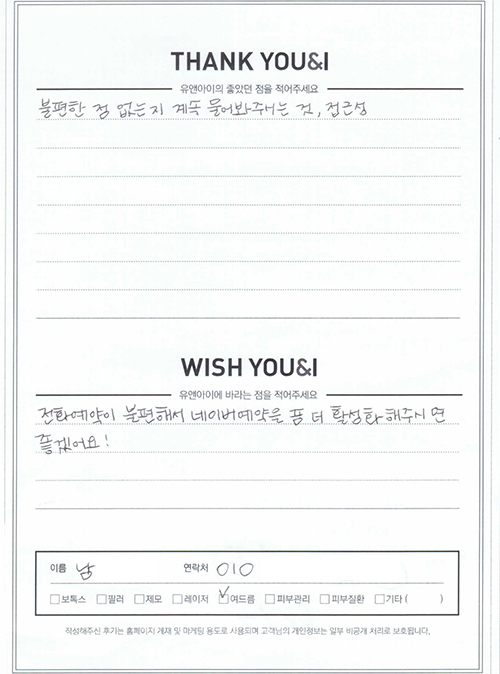 THANK YOU&I
유앤아이의 좋았던 점을 적어주세요
불편한 점 없는지 계속 물어봐주시는 것, 접근성
WISH YOU&I
유앤아이에 바라는 점을 적어주세요
전화예약이 불편해서 네이버예약을 좀 더 활성화해주시면
좋겠어요!
이름 남 연락처 010
보톡스 필러 제모 레이저 ✓여드름 피부관리 피부질환 기타 ( )
작성해주신 후기는 홈페이지 게재 및 마케팅 용도로 사용되며 고객님의 개인정보는 일부 비공개 처리로 보호됩니다.